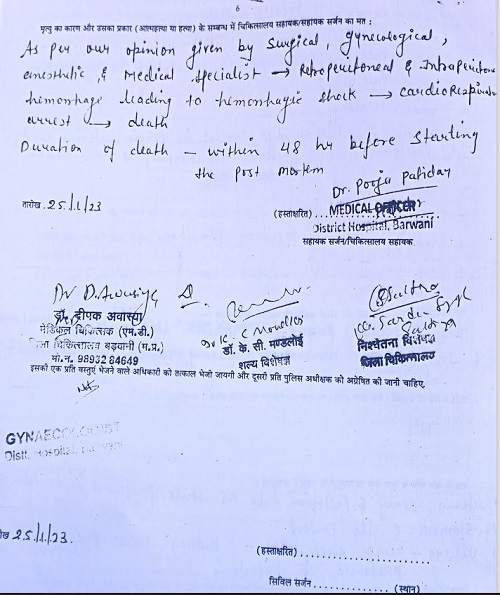 6
मृत्यु का कारण और उसका प्रकार (आत्महत्या या हत्या) के सम्बन्ध में चिकित्सालय सहायक/सहायक सर्जन का मत :
As per our opinion given by Surgical, Gynecological,
anesthetic, & Medical specialist → Retroperitoneal & Intraperitone
hemorrhage leading to hemorrhagic shock → cardioRespirat
arrest → death
Duration of death – within 48 hr before starting
the post mortem
Dr. Pooja Patidar
तारीख 25/1/23
(हस्ताक्षरित)
MEDICAL OFFICER
District Hospital, Barwani
सहायक सर्जन/चिकित्सालय सहायक.
डॉ. दीपक अवास्या
मेडिकल चिकित्सक (एम.डी.)
जिला चिकित्सालय बड़वानी (म.प्र.)
मो.न. 98932 84649
डॉ. के. सी. मण्डलोई
शल्य विशेषज्ञ
निश्चेतना विशेषज्ञ
जिला चिकित्सालय
इसकी एक प्रति वस्तुएं भेजने वाले अधिकारी को तत्काल भेजी जायगी और दूसरी प्रति पुलिस अधीक्षक को अग्रेषित की जानी चाहिए.
GYNAECOLOGIST
Distt. Hospital,
ख 25/1/23.
(हस्ताक्षरित)
सिविल सर्जन (स्थान)